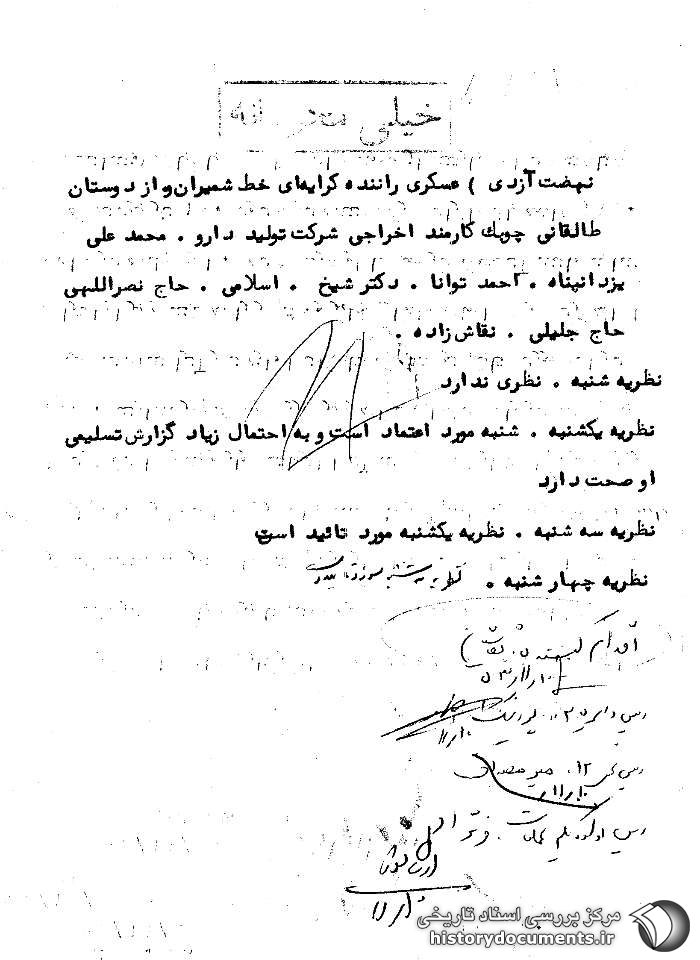 خیلی محرمانه
نهضت آزدی ) عسکری راننده کرایه‌ای خط شمیران و از دوستان
طالقانی چوبك کارمند اخراجی شرکت تولید دارو . محمد علی
یزدانپناه . احمد توانا . دکتر شیخ . اسلامی . حاج نصراللهی
حاج جلیلی . نقاش زاده .
نظریه شنبه . نظری ندارد
نظریه یکشنبه . شنبه مورد اعتماد است و به احتمال زیاد گزارش تسلیمی
او صحت دارد
نظریه سه شنبه . نظریه یکشنبه مورد تائید است
نظریه چهارشنبه . نظریه سه شنبه مورد تائید
اقدام کننده
رئیس
رئیس
رئیس
مرکز بررسی اسناد تاریخی
historydocuments.ir